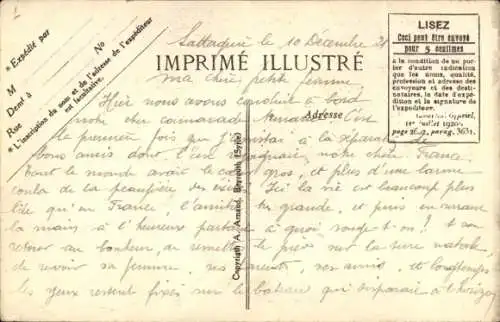 * Expédié par
M
Demt à
Rue
No
* L'inscription du nom et de l'adresse de l'expéditeur
est facultative.
IMPRIMÉ ILLUSTRÉ
Adresse
LISEZ
Ceci peut être envoyé
pour 5 centimes
à la condition de ne porter d'autre indication
que les nom, qualité,
profession et adresse
des envoyeurs et des destinataires,
la date d'expédition et la signature de
l'expéditeur.
page 26.9, parag. 3631.
Copyright A. Amalel, Beyrouth (Syrie)
le 10 Décembre 21
ma chère petite femme,
Hier nous avons conduit à bord
notre cher camarade c'est
la première fois que j' à la de
bons amis dont l'un notre chère France
tout le monde avait le gros, et plus d'une larme
coula de la paupière des Ici la vie est beaucoup plus
liée qu'en France, l'amitié plus grande, et puis en serrant
la main à l'heureux partant à quoi songe-t-on? à son
retour au bonheur, de remettre le pied sur la terre natale,
de revoir sa femme, ses parents, ses amis, et longtemps
les yeux restent fixés sur le bateau qui disparaît à l'horizon